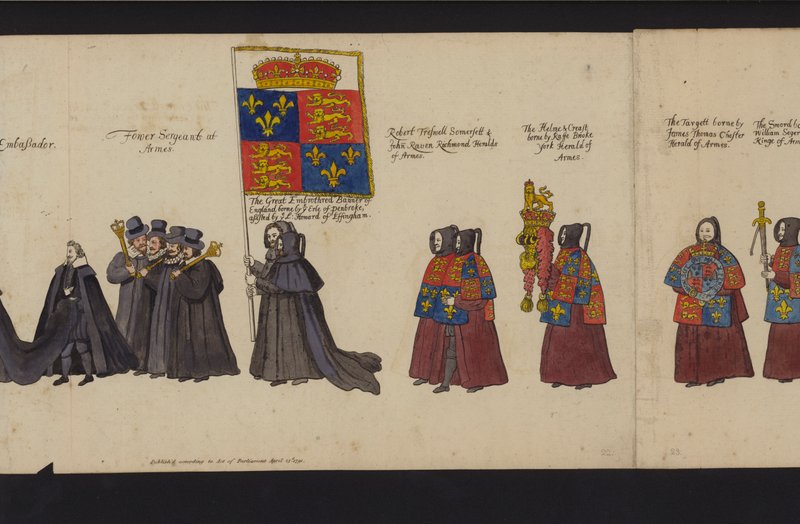 Embaßador.
Fower Sergeants at
Armes.
The Great Embrothred Banner of
England borne by ye Erle of Penbroke,
assisted by ye L: Howard of Effingham.
Robert Treswell Somersett &
John Raven Richmond Heralds
of Armes.
The Helme & Creast
borne by Rafe Brooke
York Herald of
Armes.
The Targett borne by
James Thomas Chester
Herald of Armes.
The Sword bo
William Seger
Kinge of Arm
Publish'd according to Act of Parliament April
22.
23.